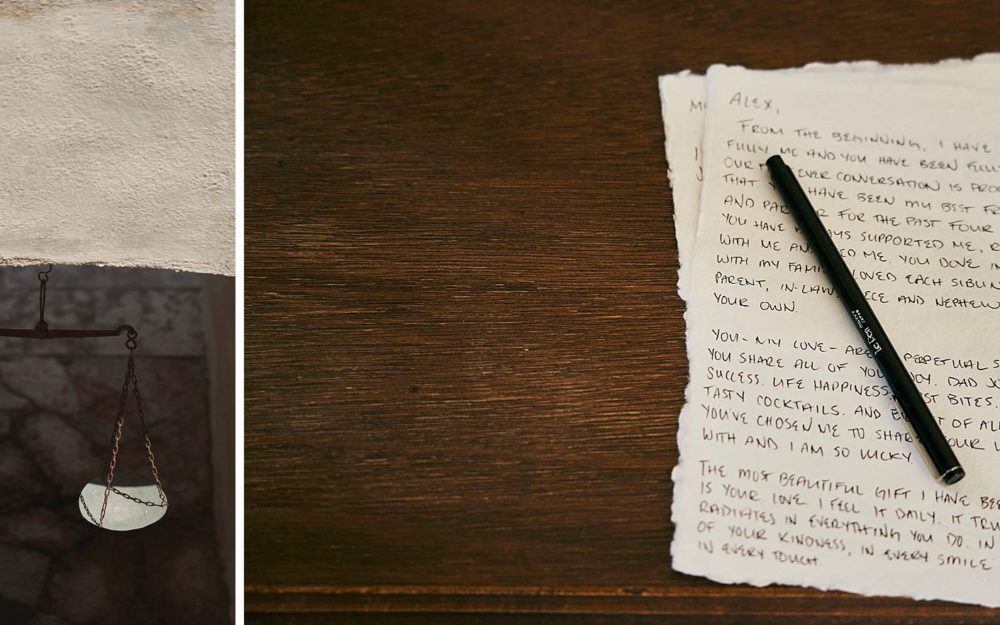 ALEX,
FROM THE BEGINNING, I HAVE
FULLY ME AND YOU HAVE BEEN FULL
OUR EVER CONVERSATION IS PROO
THAT HAVE BEEN MY BEST FR
AND PAR R FOR THE PAST FOUR
YOU HAVE AYS SUPPORTED ME, R
WITH ME AN ED ME. YOU DOVE IN
WITH MY FAMI LOVED EACH SIBLIN
PARENT, IN-LAW ECE AND NEPHEW
YOUR OWN.
YOU - MY LOVE - ARE PERPETUAL S
YOU SHARE ALL OF YOU JOY. DAD JO
SUCCESS. LIFE HAPPINESS. ST BITES.
TASTY COCKTAILS. AND B T OF ALL
YOU'VE CHOSEN ME TO SHAR OUR L
WITH AND I AM SO LUCKY.
THE MOST BEAUTIFUL GIFT I HAVE BEE
IS YOUR LOVE. I FEEL IT DAILY. IT TRU
RADIATES IN EVERYTHING YOU DO. IN
OF YOUR KINDNESS, IN EVERY SMILE
IN EVERY TOUCH.
Le Pen